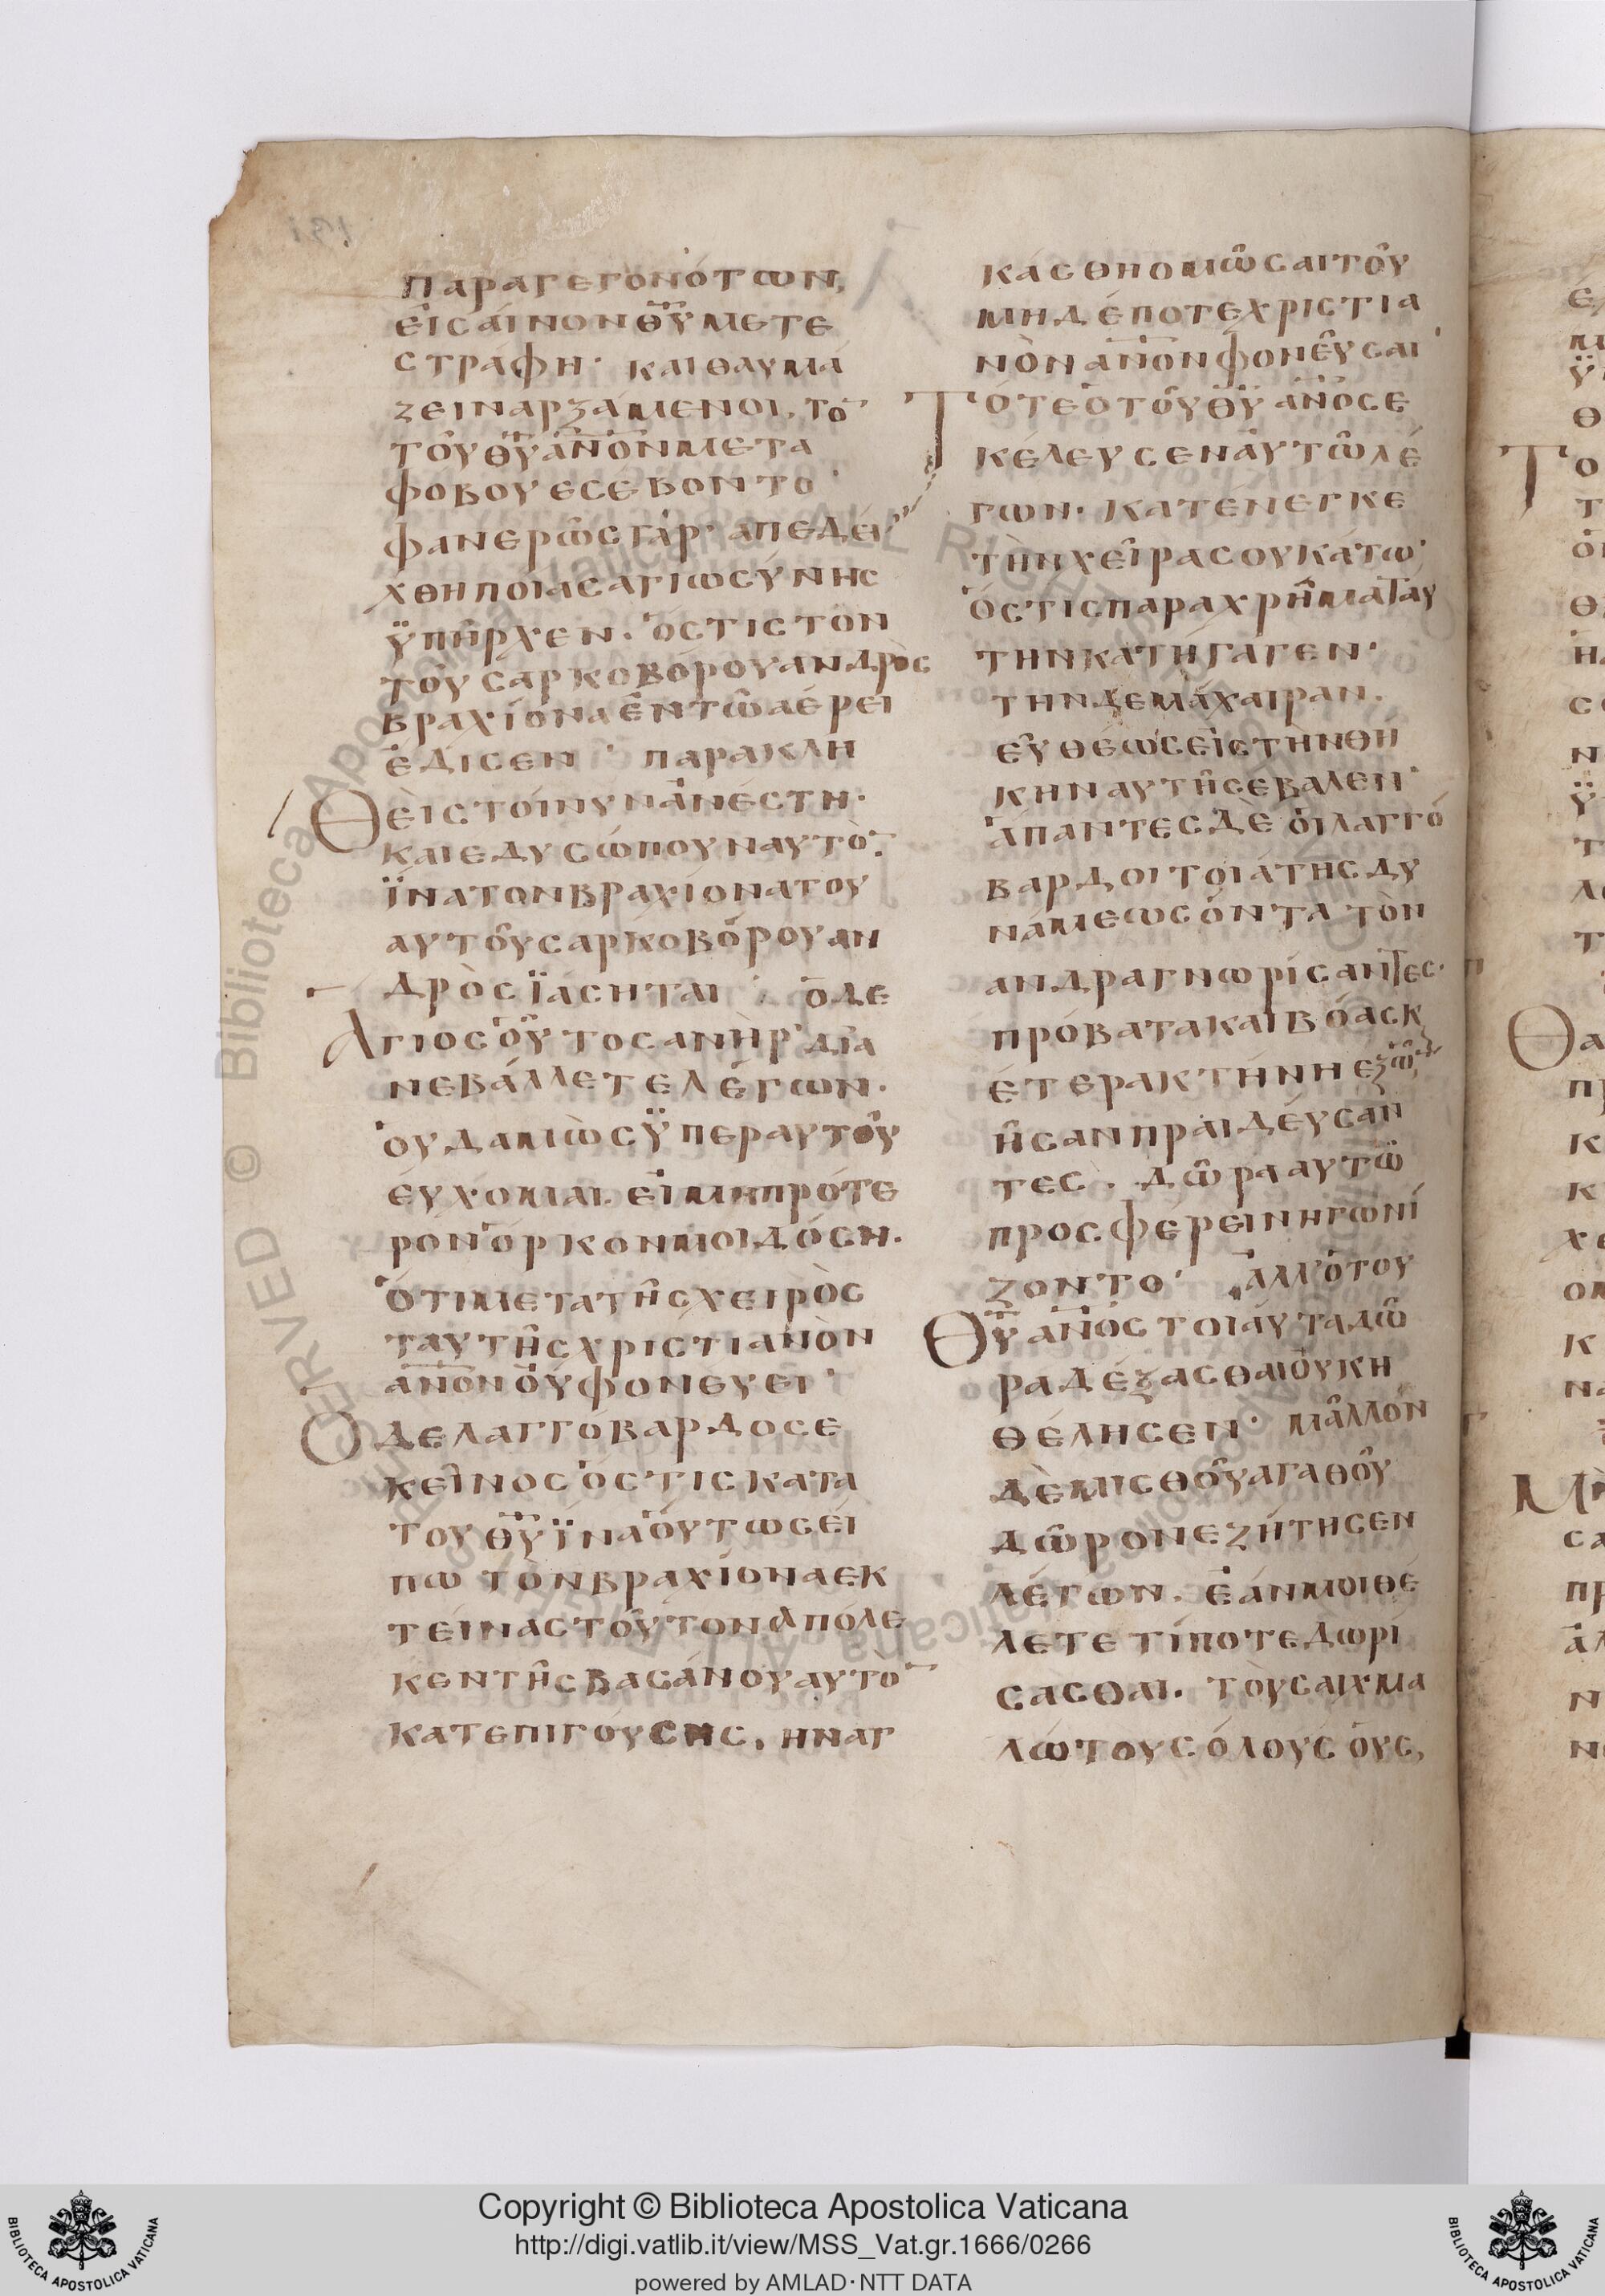 παραγεγονότων,
εἰς αἶνον θ̅υ̅ μετε
στράφη· και θαυμά
ζειν ἀρξάμενοι, το̅
τοῦ θ̅υ̅ α̅ν̅ο̅ν̅ μετα
φοβου εσεβοντο·
φανερῶς γὰρ· απεδεί
χθη ποιας αγιωσύνης
ϋπῆρχεν. ὅστις τὸν
τοῦ σαρκοβόρου ανδρὸς
βραχίονα ἐν τῶ αέρει
ἐδισεν· παρακλη
Θεὶς τοίνυν ἀνέστη·
και εδυσώπουν αυτὸ̅.
ἵνα τον βραχίονα του
αυτοῦ σαρκοβόρου αν
δρὸς ϊάσηται· ὁ δε
Αγιος οὗτος ανὴρ· δϊα
νεβάλλετε λέγων.
ουδαμῶς ϋπερ αυτοῦ
εύχομαι. εἰ μη πρότε
ρον ὅρκον μοι δόση.
ὅτι μετα τῆς χειρὸς
ταυτῆς χριστιανὸν
α̅ν̅ο̅ν̅ οὐ φονέυει·
Ο δε λαγγόβαρδος ε
κεῖνος ὅστις κατα
του θ̅υ̅ ϊνα οὕτως εί
πω τὸν βραχίονα εκ
τείνας τοῦτον απόλε
κεν τῆς βασάνου αυτὸ̅
κατεπιγούσης, ηναγ
κάσθη ομῶσαι τοῦ
μηδέποτε χριστια
νὸν α̅ν̅ο̅ν̅ φονεῦσαι·
Τότε ὁ τοῦ θ̅υ̅ α̅ν̅ο̅ς ε
κέλευσεν αυτῶ λέ
γων· κατένεγκε
τὴν χεῖρα σου κάτω·
ὅστις παραχρῆμα ταυ
την κατήγαγεν·
την δε μάχαιραν.
ευθέως εἰς τὴν θή
κην αυτῆς εβαλεν·
ἅπαντες δὲ ὁι λαγγό
βαρδοι τοιάτης δυ
νάμεως όντα τὸν
ανδρα γνωρίσαντες·
πρόβατα και βόας κ
έτερα κτήνη εξ ὧν
ῆσαν πραιδέυσαν
τες. δῶρα αυτῶ
προσφέρειν ηγωνί
ζοντο· ἀλλ' ὁ του
Θ̅υ̅ α̅ν̅ο̅ς τοιάυτα δῶ
ρα δέξασθαι ουκ η
θέλησεν· μᾶλλον
δὲ μισθοῦ αγαθοῦ
δῶρον εζήτησεν
λέγων. ἐάν μοι θέ
λετε τίποτε δωρί
σασθαι. τοὺς αιχμα
λώτους όλους ὁυς,
Copyright © Biblioteca Apostolica Vaticana
http://digi.vatlib.it/view/MSS_Vat.gr.1666/0266
powered by AMLAD·NTT DATA
BIBLIOTECA APOSTOLICA VATICANA
BIBLIOTECA APOSTOLICA VATICANA